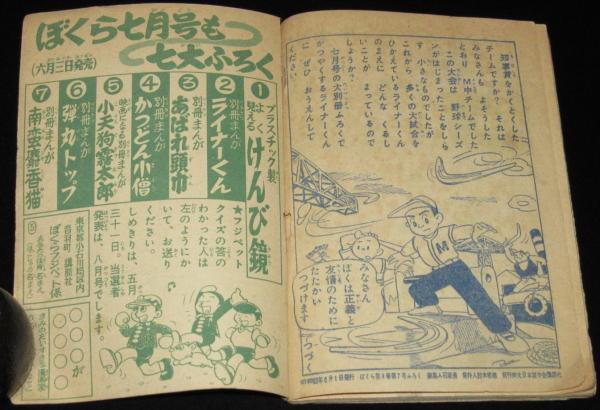 知事賞をかくとくした
チームですか？それは
みなさんも よそうした
とおり M中チームでした
この大会は 野球シーズ
ンがはじまったことをしら
す 小さなものでしたが
これから 多くの大試合を
ひかえているライナーくん
のまえに どんな くるし
いことが まっているので
しょうか？
七月号の大別冊ふろくで
かつやくするライナーくん
に ぜひ おうえんして
ください
みなさん
ぼくは正義と
友情のために
たたかい
つづけます
つづく
ぼくら七月号も
七大ふろく
（六月三日発売）
①プラスチック製
よく見える けんび鏡
②別冊まんが
ライナーくん
③別冊まんが
あばれ頭巾
④別冊まんが
かつどん小僧
⑤映画になる別冊まんが
小天狗霧太郎
⑥別冊まんが
弾丸トップ
⑦別冊まんが
南蛮麝香猫
★フジペット
クイズの答の
わかった人は
左のようにか
いて、お送り
ください。
しめきりは、五月
三十一日。当選者
発表は、八月号でします。
東京都小石川局区内
音羽町、講談社
ぼくらフジペット係
○○○○が